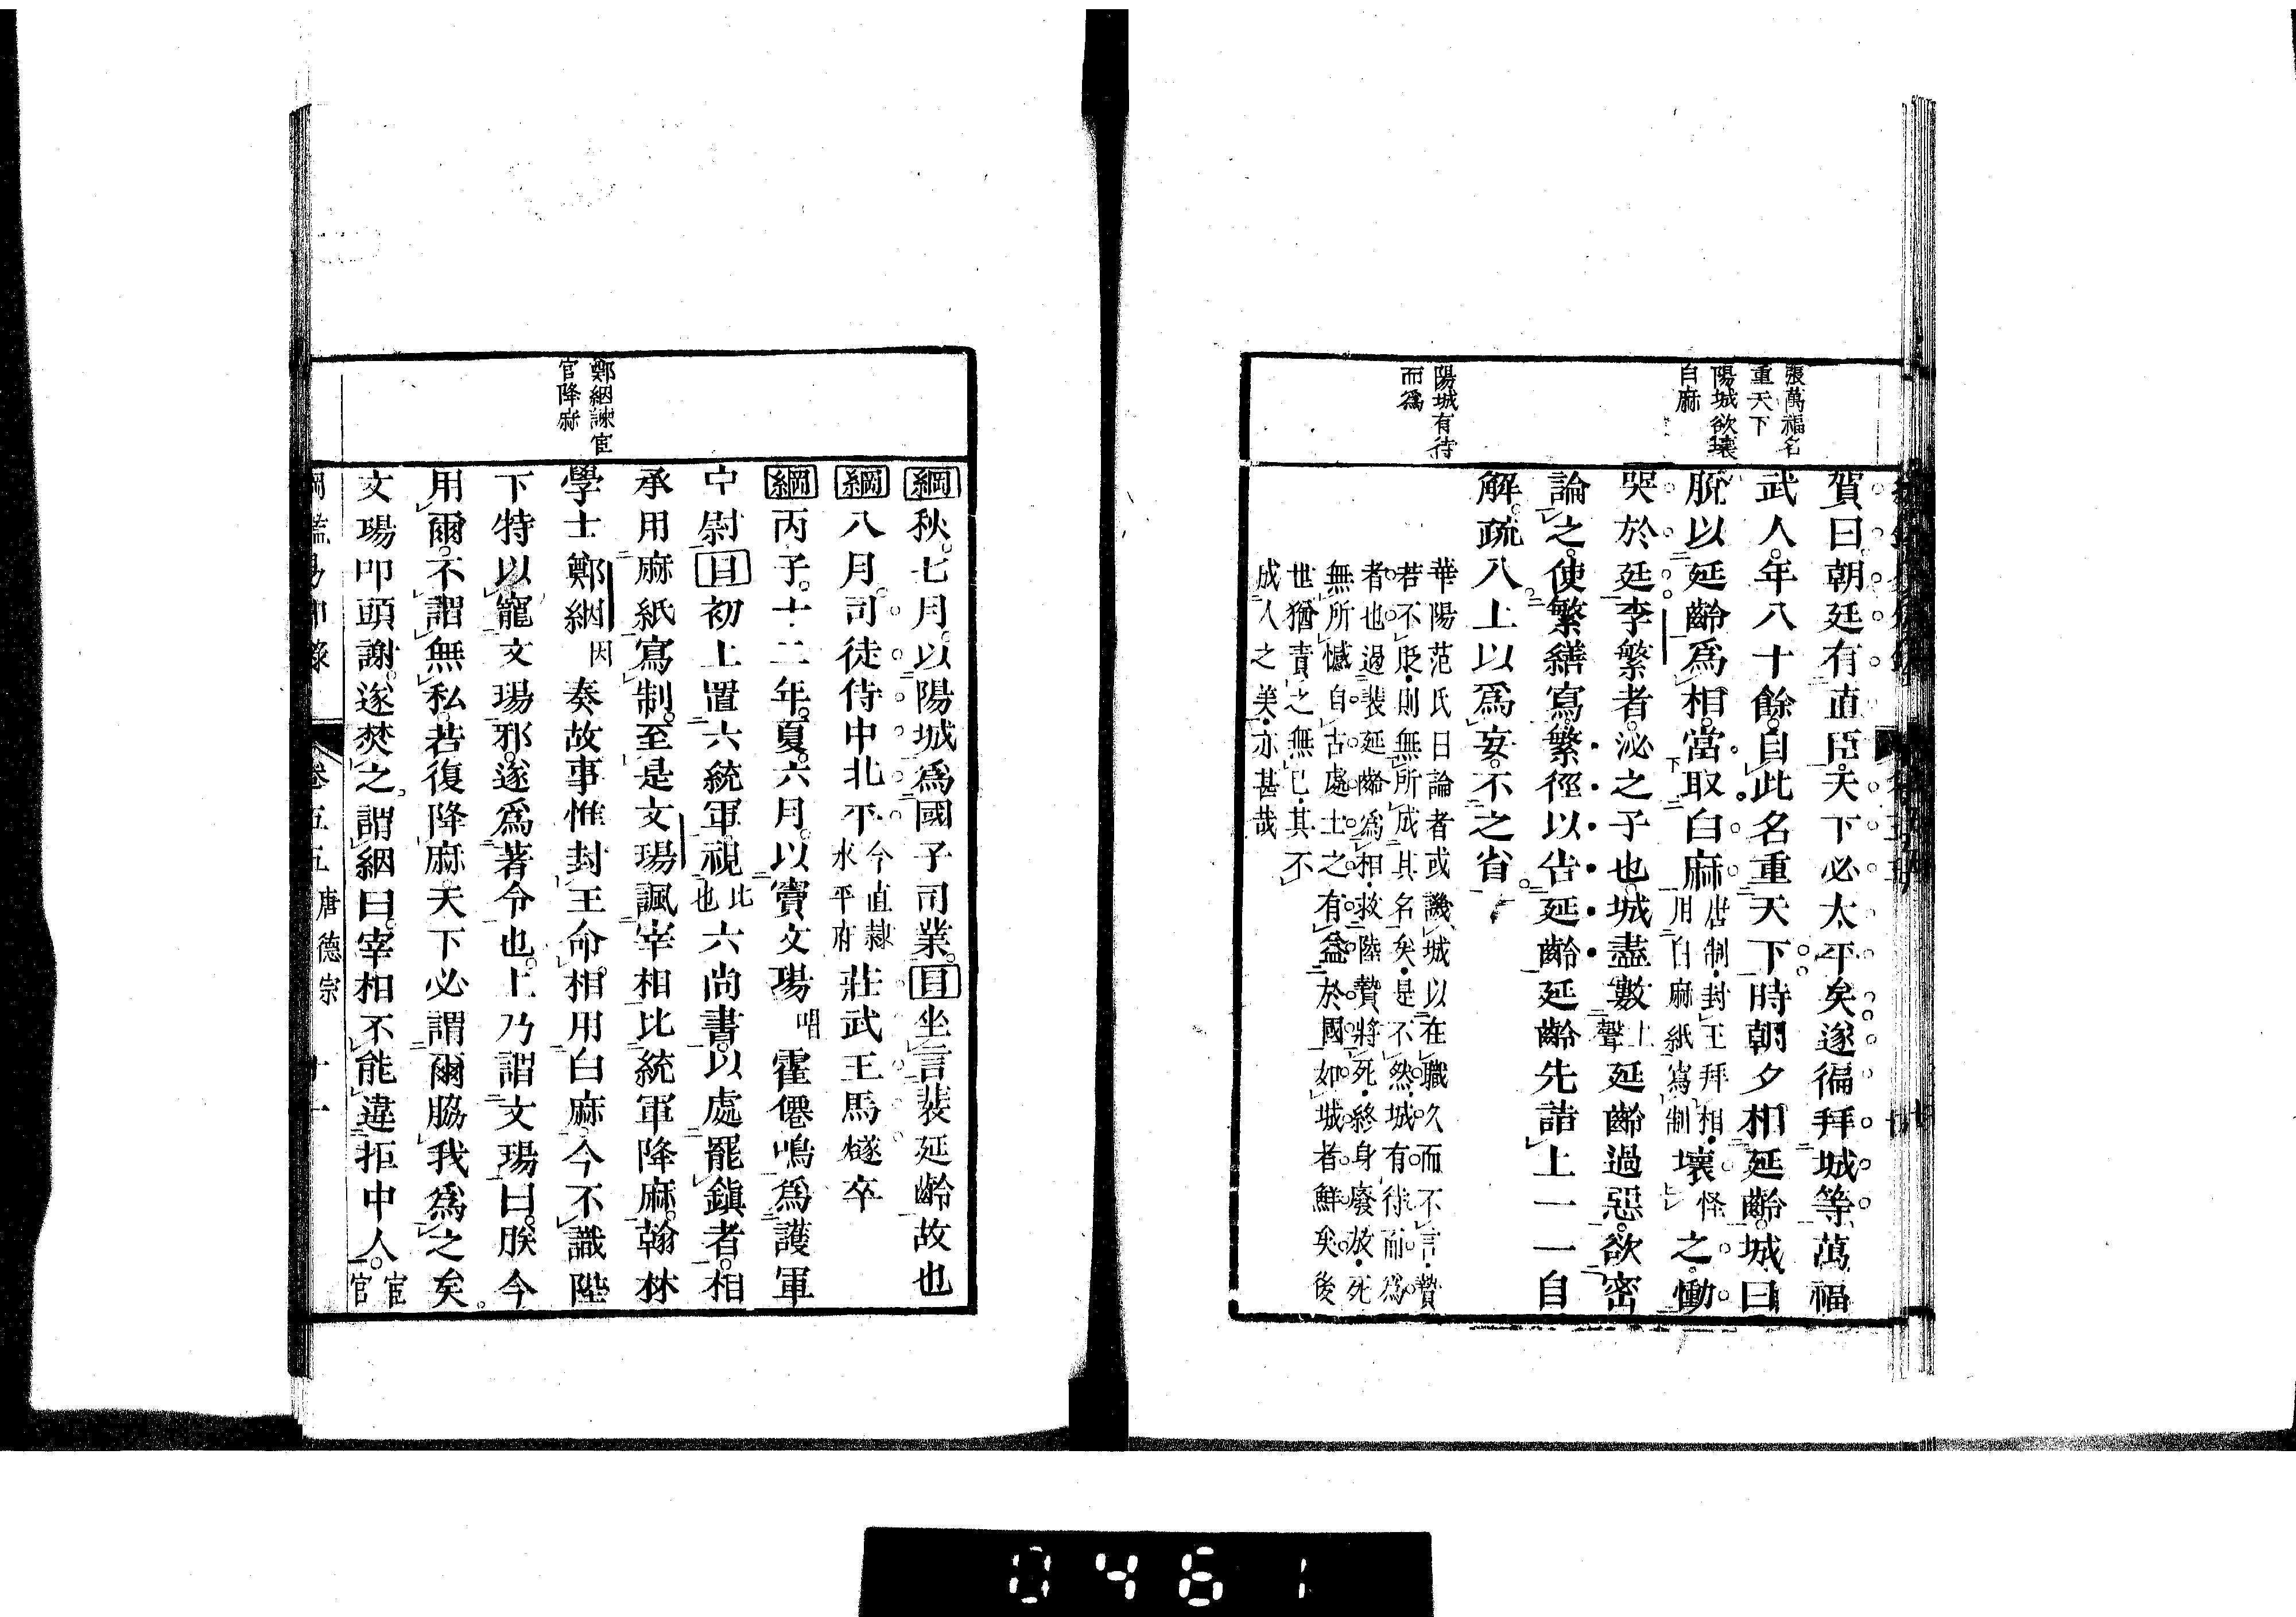 張萬福名
重天下
陽城欲壞
白麻
陽城有待
而爲
賀曰朝廷有直臣天下必太平矣遂徧拜城等萬福
武人年八十餘自此名重天下時朝夕相延齡城曰
脫以延齡爲相當取白麻唐制封王拜相用白麻紙寫制壞怪之慟
哭於廷李繁者泌之子也城盡數上聲延齡過惡欲密
論之使繁繕寫繁徑以告延齡延齡先詣上一一自
解疏入上以爲妄不之省
華陽范氏曰論者或譏城以在職久而不言贄
若不貶則無所成其名矣是不然城有待而爲
者也過裴延齡爲相救陸贄將死終身廢放死
無所憾自古處士之有益於國如城者鮮矣後
世猶責之無已其不
成人之美亦甚哉
鄭絪諫宦
官降麻
綱秋七月以陽城爲國子司業目坐言裴延齡故也
綱八月司徒侍中北平今直隸永平府莊武王馬燧卒
綱丙子十二年夏六月以竇文場唱霍僊鳴爲護軍
中尉目初上置六統軍視比也六尚書以處罷鎭者相
承用麻紙寫制至是文場諷宰相比統軍降麻翰林
學士鄭絪因奏故事惟封王命相用白麻今不識陛
下特以寵文場邪遂爲著令也上乃謂文場曰朕今
用爾不謂無私若復降麻天下必謂爾脇我爲之矣
文場叩頭謝遂焚之謂絪曰宰相不能違拒中人宦官
綱鑑易知錄 卷五五 唐德宗 十一
0461